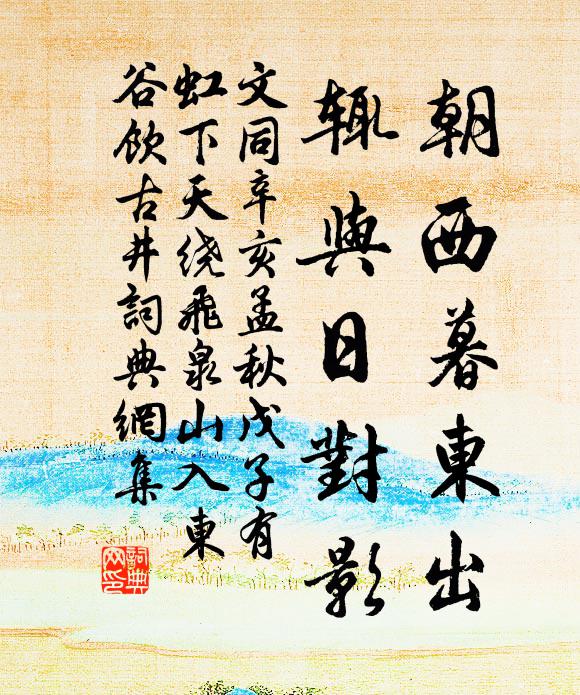 朝西暮東出
輒與日對影
文同辛亥孟秋戊子有
虹下天绕飛泉山入東
谷飲古井詞典網集
詞典网印